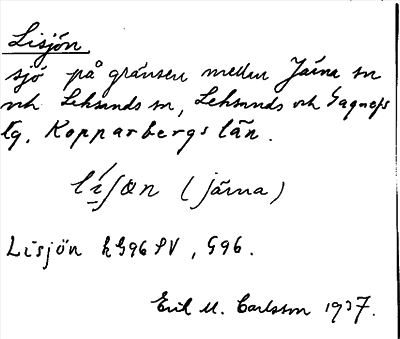 Lisjön
sjö på gränsen mellan Järna sn
och Leksands sn, Leksands och Gagnefs
tg. Kopparbergs län.
(Järna)
Lisjön hG96 SV, G96.
Erik M. Carlsson 1937.